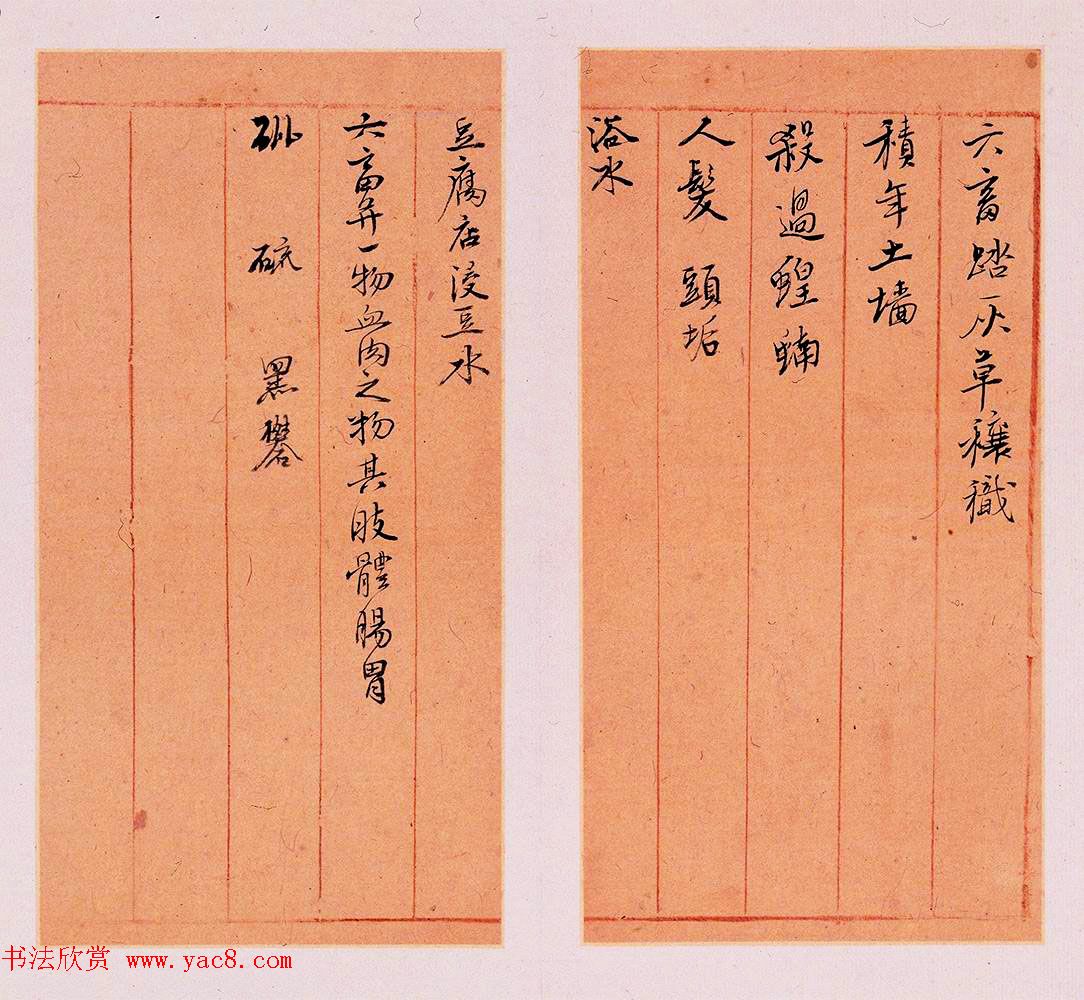 六畜踏灰草穰穢
積年土墻
殺過蝗蝻
人髮　頭垢
浴水
豆腐店浸豆水
六畜并一物血肉之物其肢體腸胃
硫　黑礬
书法欣赏 www.yac8.com